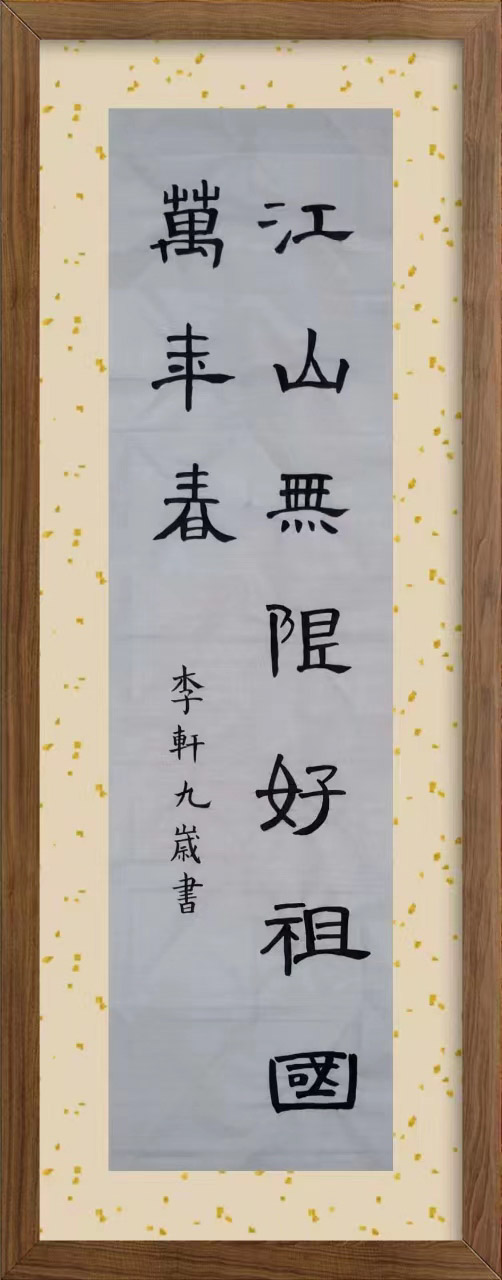 江山無限好祖國
萬年春
李軒九歲書